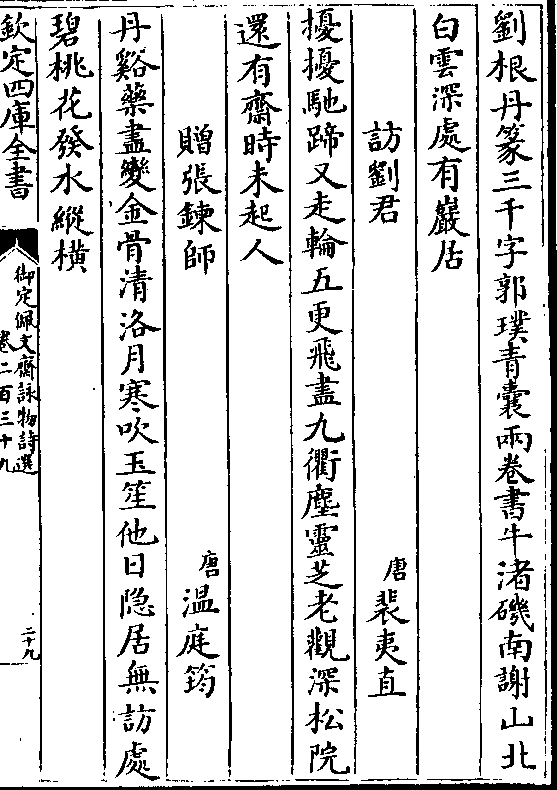 劉根丹篆三千字郭璞青囊兩卷書牛渚磯南謝山北
白雲深處有巖居
訪劉君
唐裴夷直
擾擾馳蹄又走輪五更飛盡九衢塵靈芝老觀深松院
還有齋時未起人
贈張鍊師
唐温庭筠
丹谿藥盡變金骨清洛月寒吹玉笙他日隐居無訪處
碧桃花發水縱橫
欽定四庫全書
御定佩文齋詠物詩選
卷二百三十九
二十九